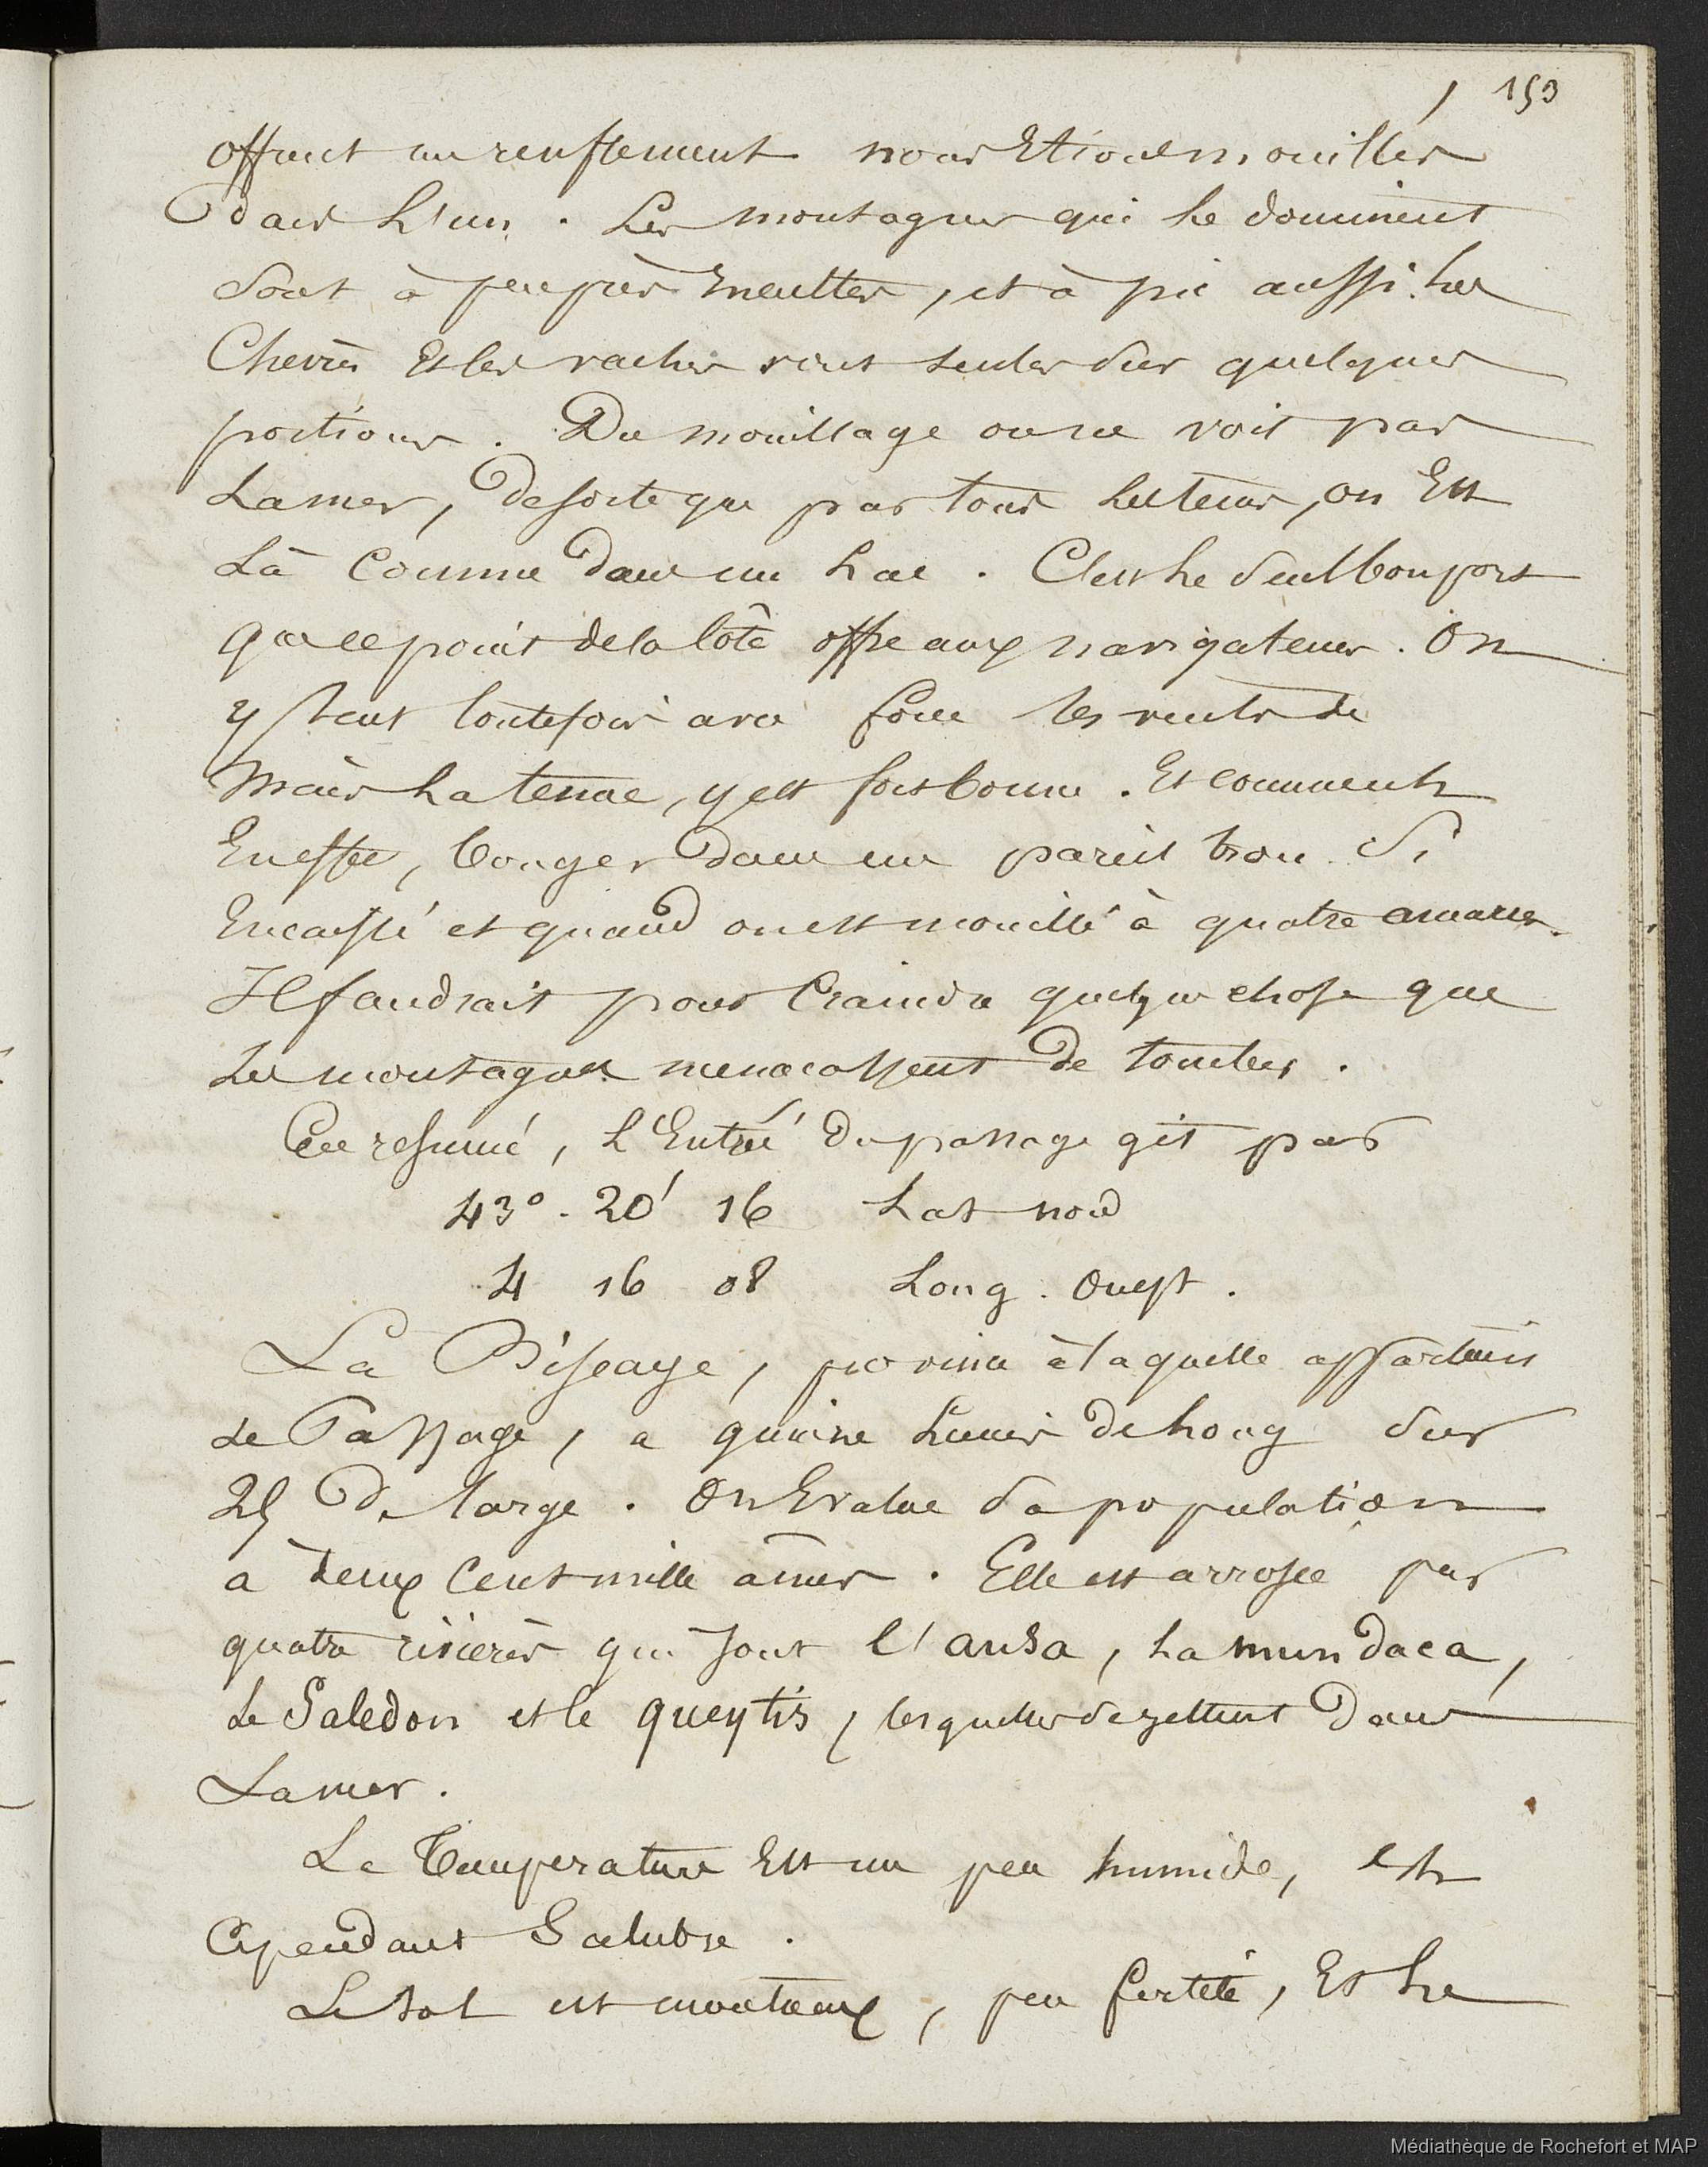 153
offrant un renflement nous Etions mouillés
dans L'un. Les montagnes qui le dominent
Sont à peu près Incultes, et à pic aussi. Les
Chevres Et les vaches vont seules sur quelques
portions. Du mouillage on ne voit pas
La mer, de sorte que par tous les tems, on Est
Là Comme dans un Lac. C'est Le Seul bon port
que ce point de la Côte offre aux navigateurs. On
y sent toutefois avec force les vents de
Mais La tenue, y est fort bonne. Et comment
En effet, bouger dans un pareil trou Si
Encaissé et quand on est mouillé à quatre amarres.
Il faudrait pour Craindre quelque chose que
Les montagnes menacassent de tomber.
En resumé, L'Entrée du passage git par
43° . 20' 16 Lat nord
4 16 08 Long. Ouest.
La Biscaye, province à laquelle appartient
Le Passage, a quinze Lieues de Long sur
25 de large. On Evalue Sa population
a deux Cent mille âmes. Elle est arrosée par
quatre rivières qui sont l'ansa, La mundaca,
Le Saledon et le queytis, lesquelles se jettent Dans
La mer.
La Temperature Est un peu humide, et
Cependant Salubre.
Le sol est montueux, peu fertile, Et Le
Médiathèque de Rochefort et MAP